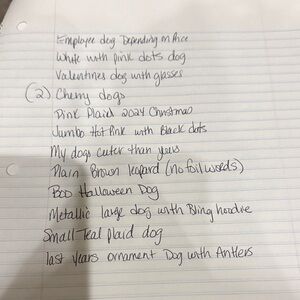 Employee dog Depending on Price
White with pink dots dog
Valentines dog with glasses
(2) Cherry dogs
Pink Plaid 2024 Christmas
Jumbo Hot Pink with Black dots
My dogs cuter than yours
Plain Brown leopard (no foil words)
Boo Halloween Dog
Metallic large dog with Bling
Small Teal plaid dog
last years ornament Dog with Antlers